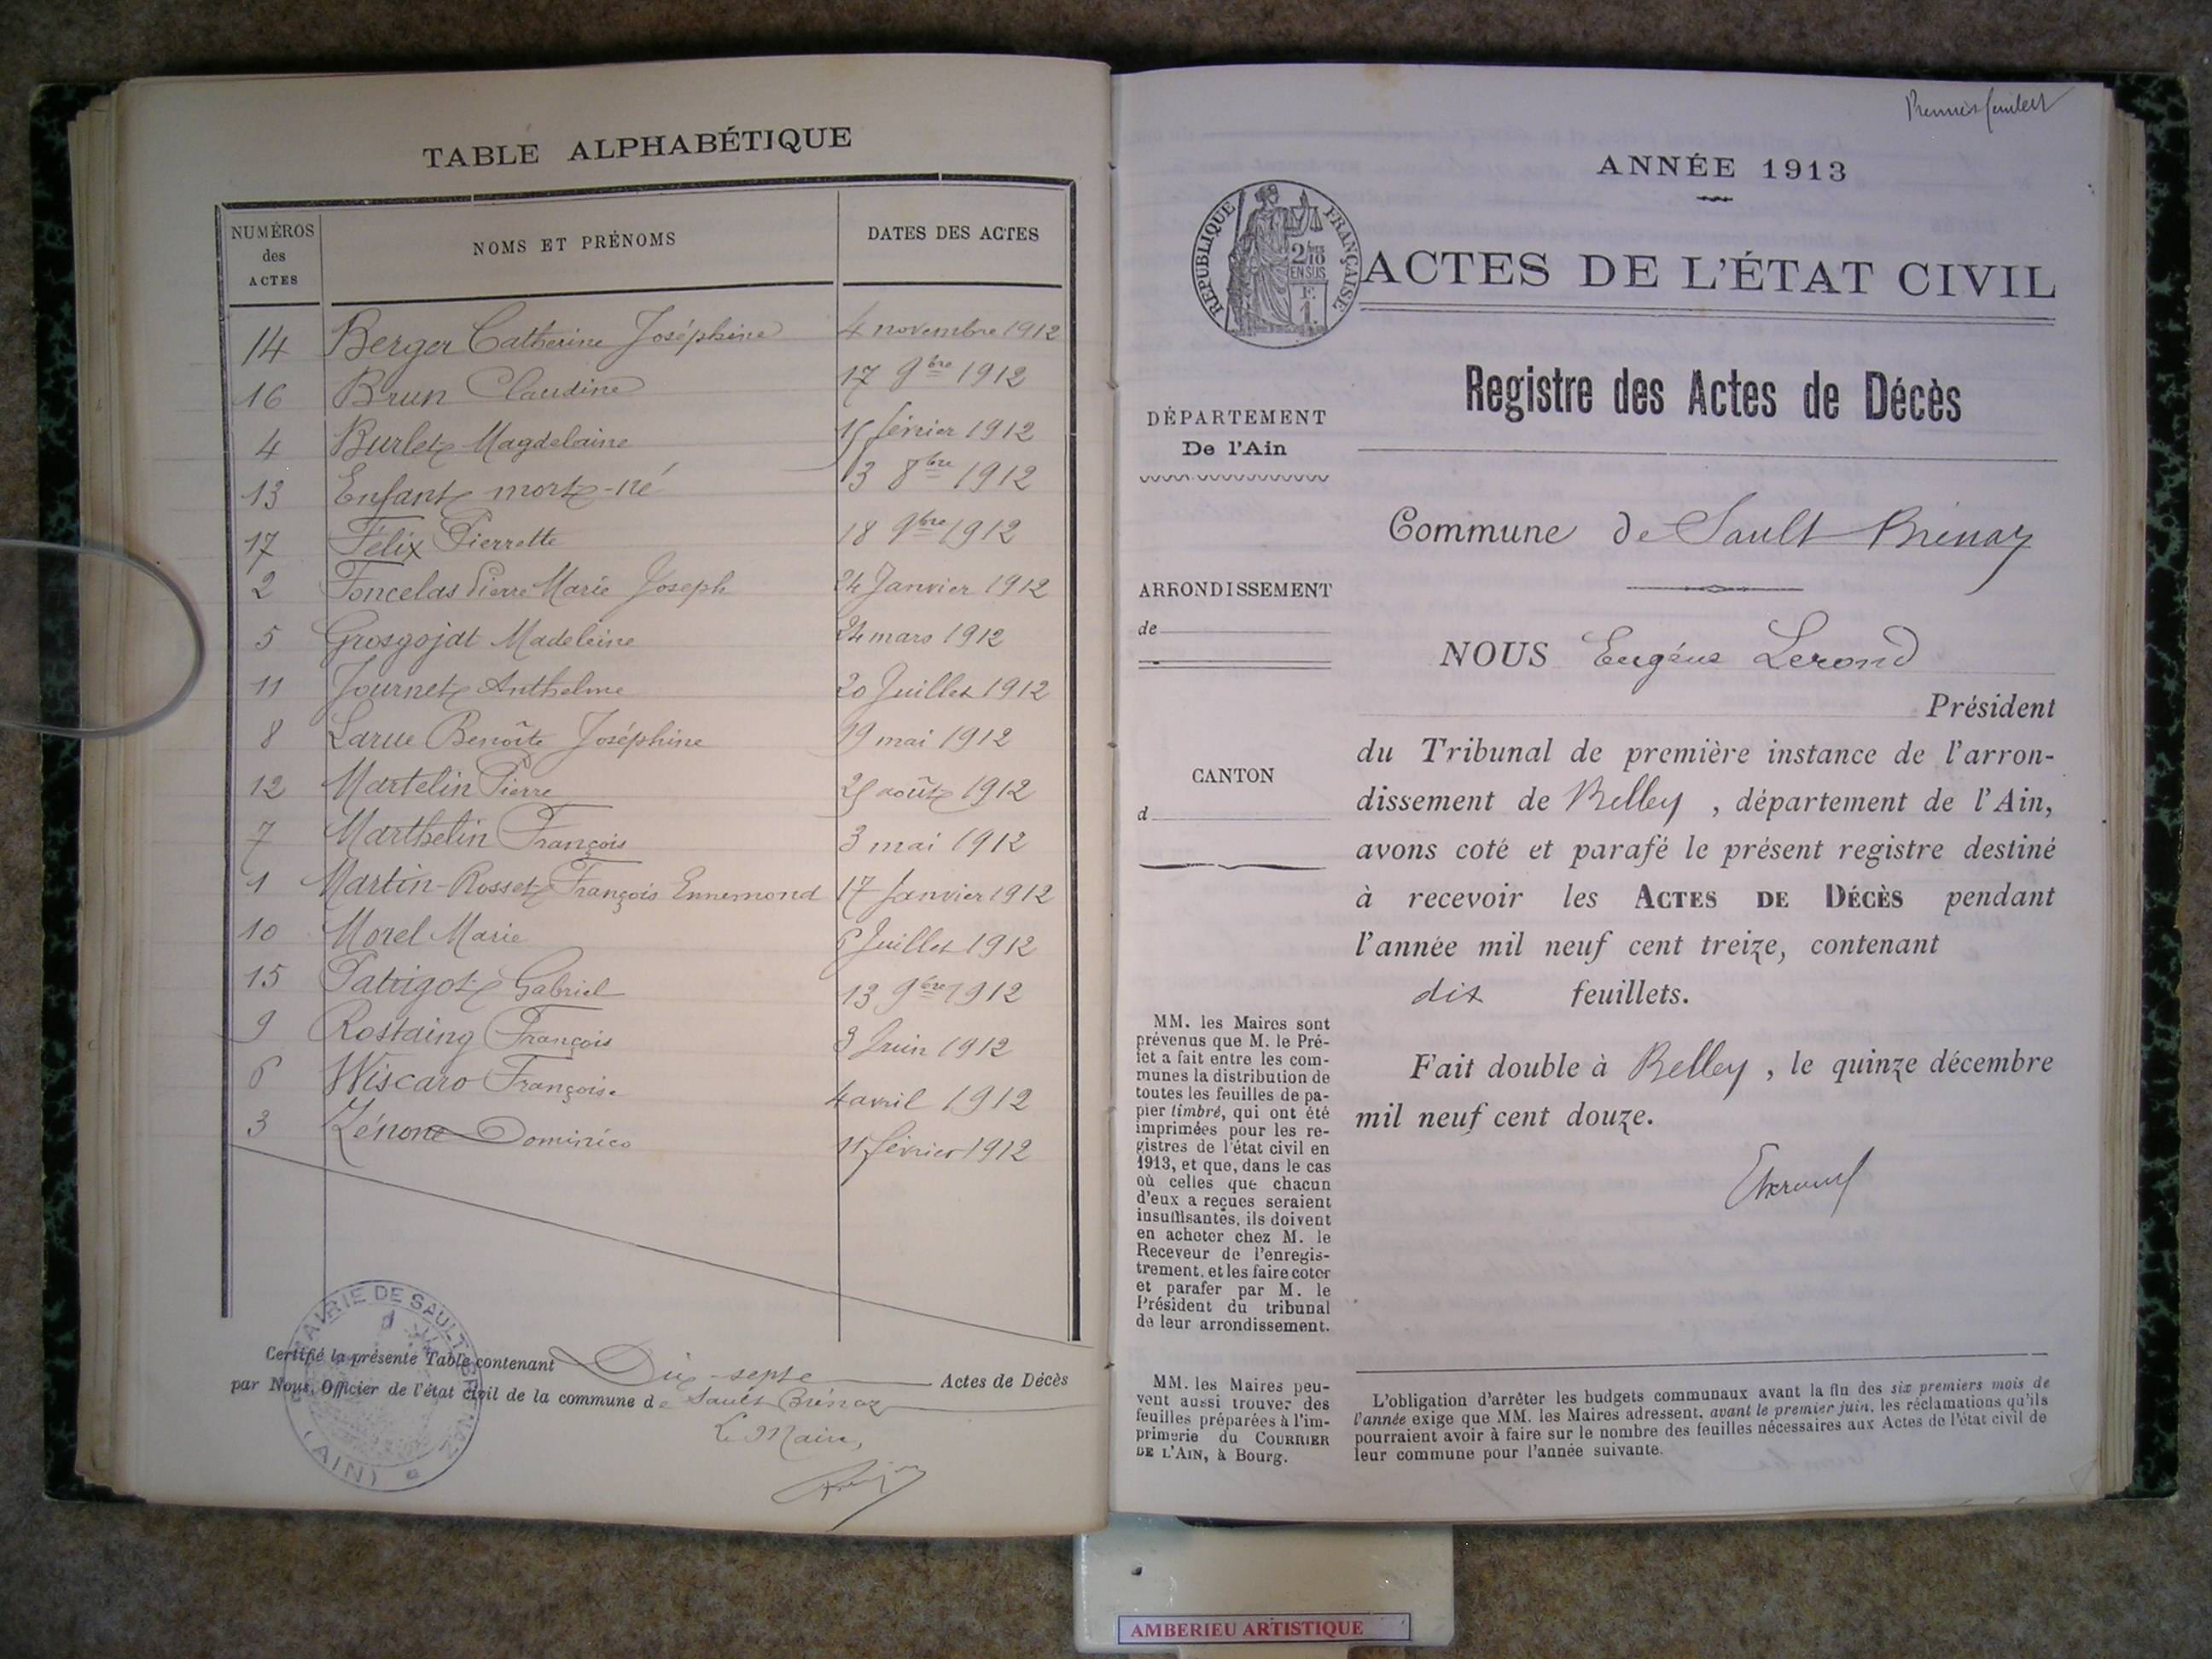 TABLE ALPHABÉTIQUE
NUMÉROS des ACTES NOMS ET PRÉNOMS DATES DES ACTES
14 Berger Catherine Joséphine 4 novembre 1912
16 Brun Claudine 17 9bre 1912
4 Burlet Magdelaine 15 février 1912
13 Enfant mort-né 13 8bre 1912
17 Félix Pierrette 18 9bre 1912
2 Foncelas Pierre Marie Joseph 24 Janvier 1912
5 Grosgojat Madeleine 24 mars 1912
11 Journet Anthelme 20 Juillet 1912
8 Larue Benoîte Joséphine 19 mai 1912
12 Martelin Pierre 25 août 1912
7 Marthelin François 3 mai 1912
1 Martin-Rosset François Ennemond 17 Janvier 1912
10 Morel Marie 6 Juillet 1912
15 Patrigot Gabriel 13 9bre 1912
9 Rostaing François 3 Juin 1912
6 Wiscaro Françoise 4 avril 1912
3 Zénone Dominico 11 février 1912
Certifié la présente Table contenant Dix-sept Actes de Décès
par Nous, Officier de l'état civil de la commune de Sault Brénaz
Le Maire,
MAIRIE DE SAULT-BRENAZ
(AIN)
Premier feuillet
ANNÉE 1913
RÉPUBLIQUE FRANÇAISE
2/10
EN SUS
F.
1.
ACTES DE L'ÉTAT CIVIL
Registre des Actes de Décès
DÉPARTEMENT
De l'Ain
Commune de Sault Brénaz
ARRONDISSEMENT
de
NOUS Eugène Lerond
Président
du Tribunal de première instance de l'arron-
dissement de Belley, département de l'Ain,
avons coté et parafé le présent registre destiné
à recevoir les ACTES DE DÉCÈS pendant
l'année mil neuf cent treize, contenant
dix feuillets.
Fait double à Belley, le quinze décembre
mil neuf cent douze.
CANTON
d
MM. les Maires sont
prévenus que M. le Pré-
fet a fait entre les com-
munes la distribution de
toutes les feuilles de pa-
pier timbré, qui ont été
imprimées pour les re-
gistres de l'état civil en
1913, et que, dans le cas
où celles que chacun
d'eux a reçues seraient
insuffisantes, ils doivent
en acheter chez M. le
Receveur de l'enregis-
trement, et les faire coter
et parafer par M. le
Président du tribunal
de leur arrondissement.
MM. les Maires peu-
vent aussi trouver des
feuilles préparées à l'im-
primerie du COURRIER
DE L'AIN, à Bourg.
L'obligation d'arrêter les budgets communaux avant la fin des six premiers mois de
l'année exige que MM. les Maires adressent, avant le premier juin, les réclamations qu'ils
pourraient avoir à faire sur le nombre des feuilles nécessaires aux Actes de l'état civil de
leur commune pour l'année suivante.
AMBERIEU ARTISTIQUE